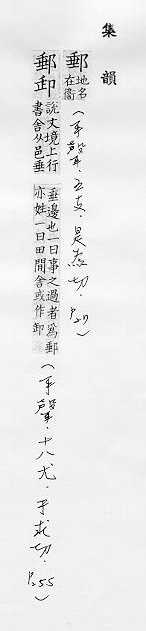 集韻
郵 地名在衞（平聲．五支．是為切．P.27）
郵 卸 說文境上行書舍从邑垂垂邊也一曰事之過者為郵亦姓一曰田間舍或作卸（平聲．十八尤．于求切．P.255）